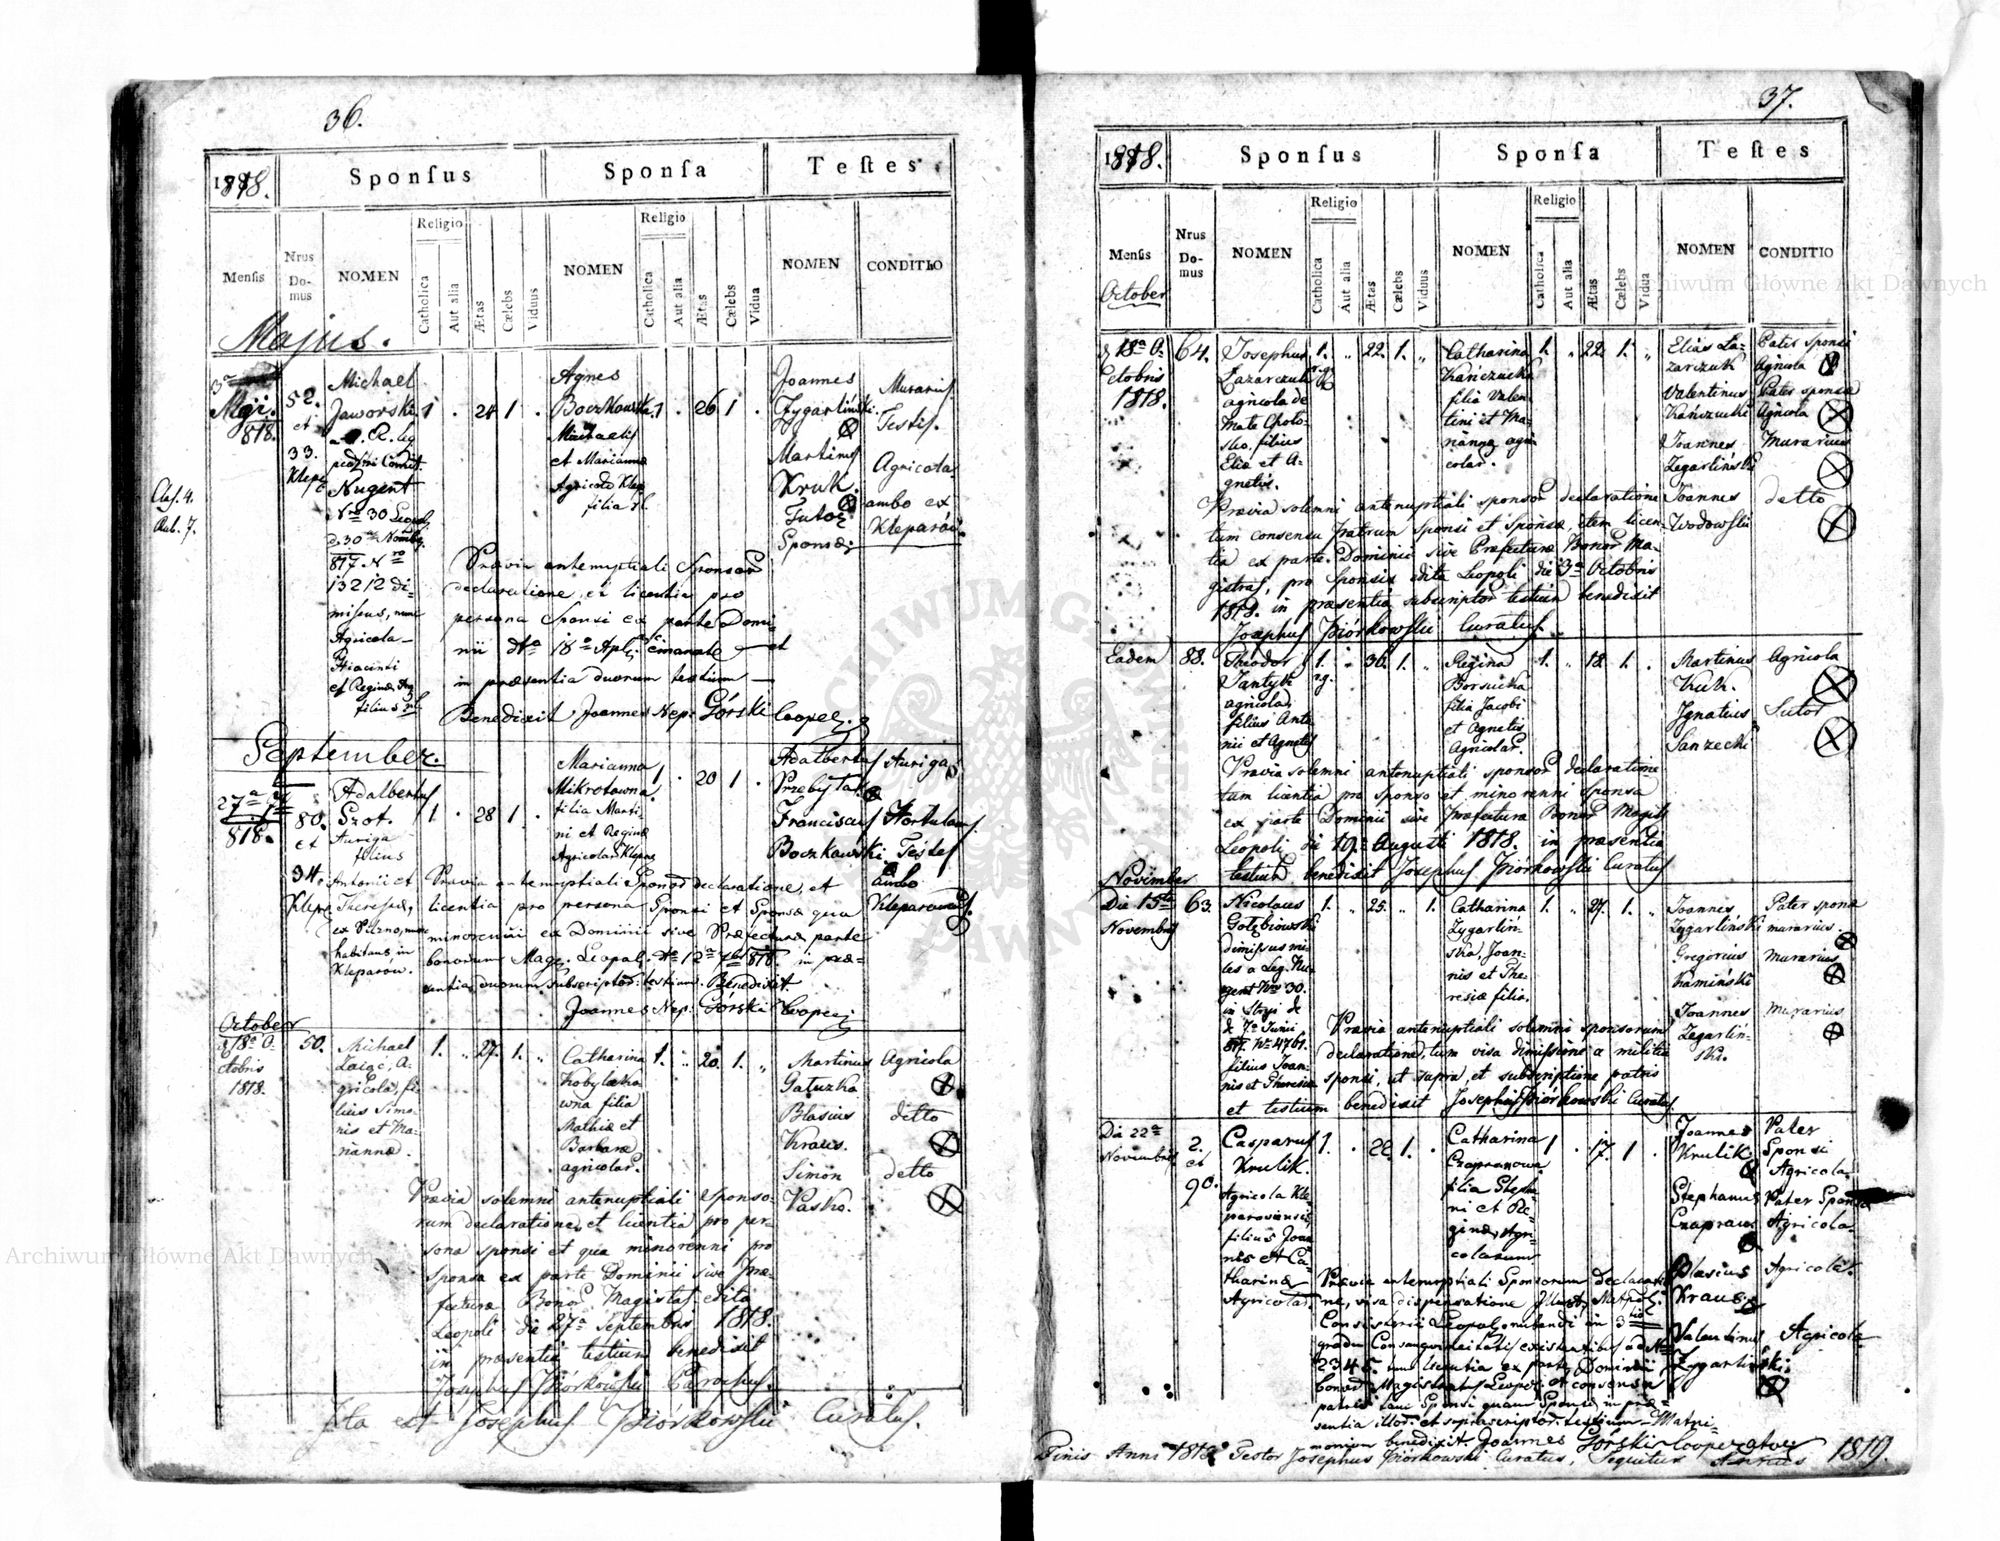 36.
1818.
Sponsus
Sponsa
Testes
Mensis
Nrus Do-mus
NOMEN
Religio
Catholica
Aut alia
Ætas
Cœlebs
Viduus
NOMEN
Religio
Catholica
Aut alia
Ætas
Cœlebs
Vidua
NOMEN
CONDITIO
Majus.
3a
Maji.
818.
52.
et
33.
Klep:
Michael
Jaworski
Nugent
Nro 30 Leopol:
817. Nro
13212 di-
missus, nunc
Agricola
Hiacinti
et Reginæ
filius
1 . 24 1 .
Agnes
Boczkowska
Michaelis
et Marianna
Agricola Klep:
filia
1 . 26 1 .
Joannes
Zygarliński.
Martinus
Kruk.
Tutor
Sponsæ
Murarius
Testis.
Agricola
ambo ex
Kleparów.
Clas. 4.
Rub. 7.
Prævia antenuptiali Sponsor
declaratione, et licentia pro
persona Sponsi ex parte Domi-
nii dto 18a Apl: emanate et
in præsentia duorum testium
Benedixit Joannes Nep: Górski Cooper:
September.
27a 7br
818.
80.
et
34.
Klep:
Adalbertus
Szot.
Auriga
filius
Antonii et
Theresiæ,
ex Pilzno, nunc
habitans in
Kleparow.
1 . 28 1 .
Marianna
Mikrotowna
filia Marti-
ni et Reginæ
Agricolar: Klepar:
1 . 20 1 .
Adalbertus
Przebyta.
Franciscus
Boczkowski
Auriga
Hortulanus
Testes
ambo
Kleparoviens.
Prævia antenuptiali Sponsor declaratione, et
licentia pro persona Sponsi et Sponsæ qua
minorenni ex Dominii sive Præfecturæ parte
bonorum Mag: Leopol: dto 12a 7bris 818 in præ-
sentia duorum subscriptor: testium. Benedixit
Joannes Nep: Górski Cooper:
October
18a O-
ctobris
1818.
50.
Michael
Zaigć, A-
gricola, fi-
lius Simo-
nis et Ma-
riannæ.
1. " 27. 1. "
Catharina
Kobylecka
wna filia
Mathiæ et
Barbaræ
agricolar.
1. " 20. 1. "
Martinus
Gatuzka
Blasius
Kraus.
Simon
Vasko.
Agricola
detto
detto
Prævia solemni antenuptiali sponso-
rum declaratione, et licentia pro per-
sona sponsi et qua minorenni pro
sponsa ex parte Dominii sive Præ-
fecturæ Bonor: Magistral: edita
Leopoli die 27a Septembris 1818.
in præsentia testium benedixit
Josephus Piórkowski Parochus.
Ita est Josephus Piórkowski Curatus.
37.
1818.
Sponsus
Sponsa
Testes
Mensis
October
Nrus Do-mus
NOMEN
Religio
Catholica
Aut alia
Ætas
Cœlebs
Viduus
NOMEN
Religio
Catholica
Aut alia
Ætas
Cœlebs
Vidua
NOMEN
CONDITIO
18a O-
ctobris
1818.
64.
Josephus
Lazarczuk
agricola de
Mate Choło-
sko, filius
Eliæ et A-
gnetis.
1. " 22. 1. "
Catharina
Kańczucka
filia Valen-
tini et Ma-
riannæ agri-
colar.
1. " 22. 1. "
Elias La-
zarczuk
Valentinus
Kańczucki
Joannes
Zegarliński
Joannes
Wodowski
Pater sponsi
Agricola
Pater sponsæ
Agricola
Murarius
detto
Prævia solemni antenuptiali sponsor declaratione
tum consensu Patrum sponsi et sponsæ, item licen-
tia ex parte Dominii sive Præfecturæ Bonor Ma-
gistral, pro Sponsis edita Leopoli die 3a Octobris
1818. in præsentia subscriptor testium benedixit
Josephus Piórkowski Curatus.
Eadem
88.
Theodor
Jantyk
agricola,
filius Anto-
nii et Agnetis
1. " 36. 1. "
Regina
Borsucka
filia Jacobi
et Agnetis
Agricolar.
1. " 18. 1. "
Martinus
Kuk.
Ignatius
Sanzecki
Agricola
Sutor
Prævia solemni antenuptiali sponsor declaratione
tum licentia pro sponso et minorenni sponsa
ex parte Dominii sive Præfecturæ Bonor Magist
Leopoli die 19a Augusti 1818. in præsentia
testium benedixit Josephus Piórkowski Curatus
November
Die 15ta
Novembris
63.
Nicolaus
Gołębiowski
dimissus mi-
les a Leg. Nu-
gent Nro 30.
in Stryi de
de 7a Junii
817. Nr 4761.
filius Joan-
nis et Theresiæ
1. " 25. " 1.
Catharina
Zygarlin-
ska, Joan-
nis et The-
resiæ filia.
1. " 27. 1. "
Joannes
Zygarlinski
Gregorius
Kamiński
Joannes
Zegarlin-
ski.
Pater sponsæ
murarius.
Murarius
murarius
Prævia antenuptiali solemni sponsorum
declaratione, tum visa dimissione a militia
sponsi, ut supra, et subscriptione patris
et testium benedixit Josephus Piórkowski Curatus.
Die 22a
Novembris
2.
et
90.
Casparus
Krulik.
Agricola Kle-
paroviensis,
filius Joan-
nis et Ca-
tharinæ
Agricolar.
1. . 22. 1. .
Catharina
Czapranowa
filia Stepha-
ni et Re-
ginæ, Agri-
colarum
1 . 17. 1 .
Joannes
Krulik
Stephanus
Czapran
Blasius
Kraus
Valentinus
Zygarliński.
Pater
Sponsi
Agricola
Pater Sponsæ
Agricola.
Agricola.
Agricola
Prævia antenuptiali Sponsorum declaratio-
ne, visa dispensatione Illust: Metrpol:
Consistorii Leopol: nubendi in 3tio
gradu Consanguineitatis existentibus ad Nr
2345. tum licentia ex parte Dominii
bonor: Magistratus Leopol: et consensu
patris tam Sponsi quam Sponsæ, in præ-
sentia illor: et suprascriptor: testium Matri-
monium benedixit. Joannes Górski Cooperator
Finis Anni 1818. Testor Josephus Piórkowski Curatus, Sequitur Annus 1819.
Archiwum Główne Akt Dawnych
Archiwum Główne Akt Dawnych
ARCHIWUM GŁÓWNE AKT DAWNYCH